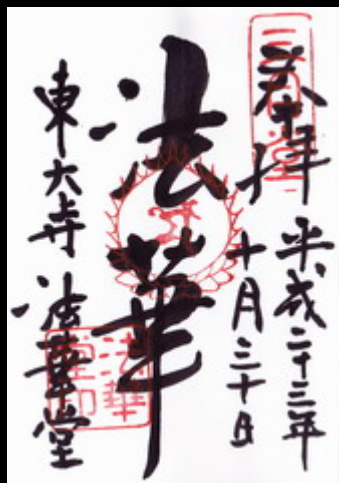 奉拝
平成二十三年
十月三十日
法華
東大寺 法華堂
三月堂
法華堂印